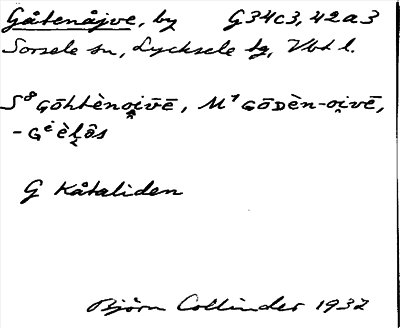 Gåtenåjve, by G34c3, 42a3
Sorsele sn, Lycksele tg, Vbt l.
S⁸ GōhtènoiVē, M¹ GōDèn-oivē,
-Gⁱèḷâs
G Kåtaliden
Björn Collinder 1932